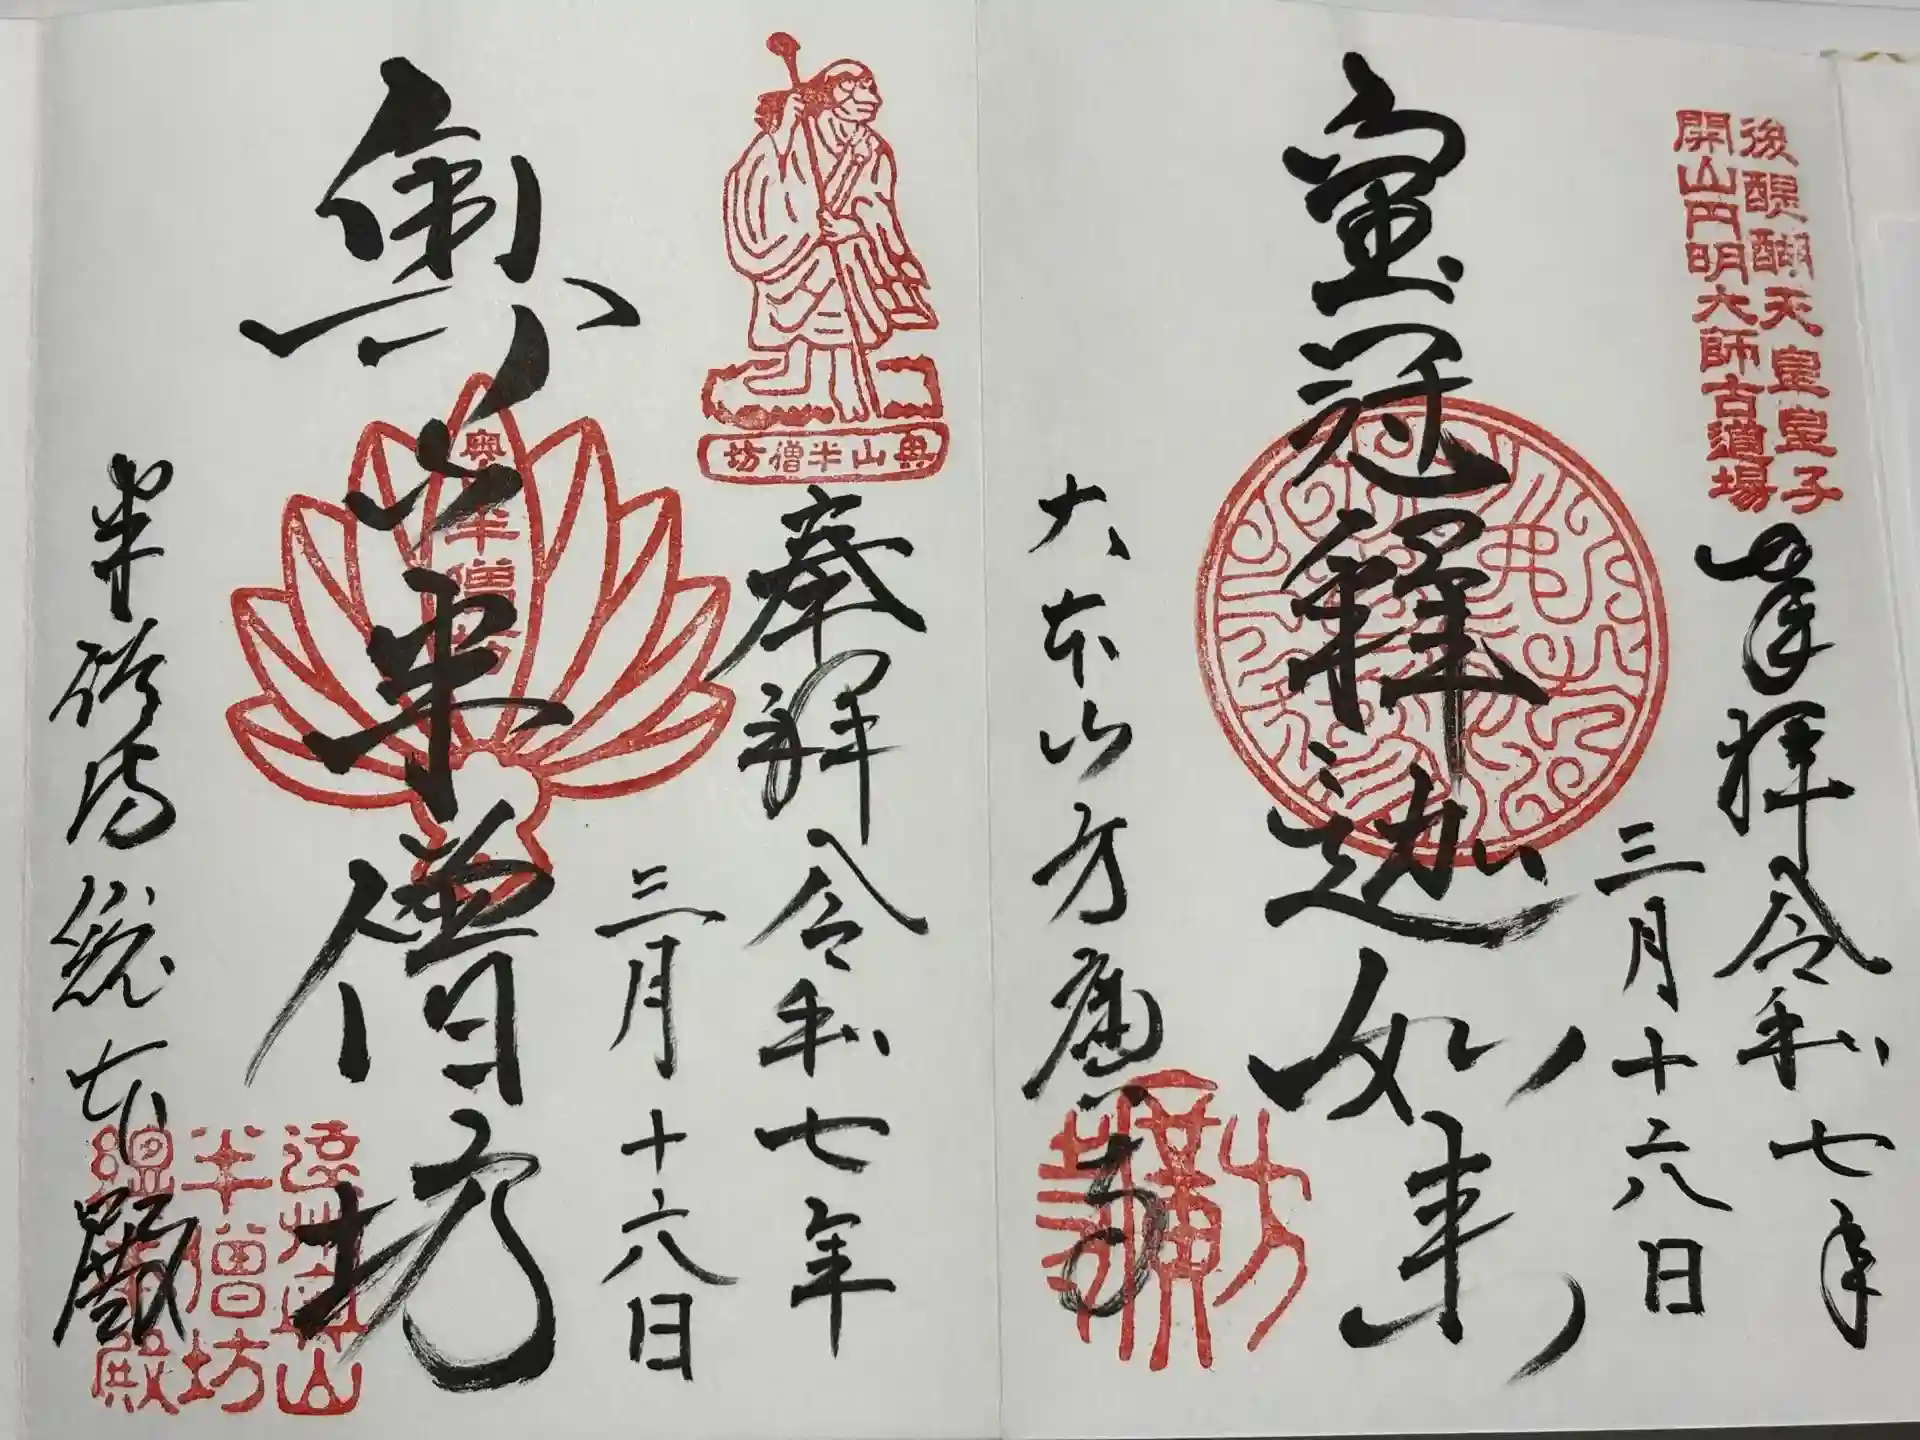 後醍醐天皇皇子
開山円明大師古道場
奉拝 令和七年
三月十六日
宝冠釋迦如来
大本山方廣寺
奥山半僧坊
奉拜 令和七年
三月十六日
奥山半僧坊
奥山半僧坊
半僧坊総本殿
遠州奥山
半僧坊